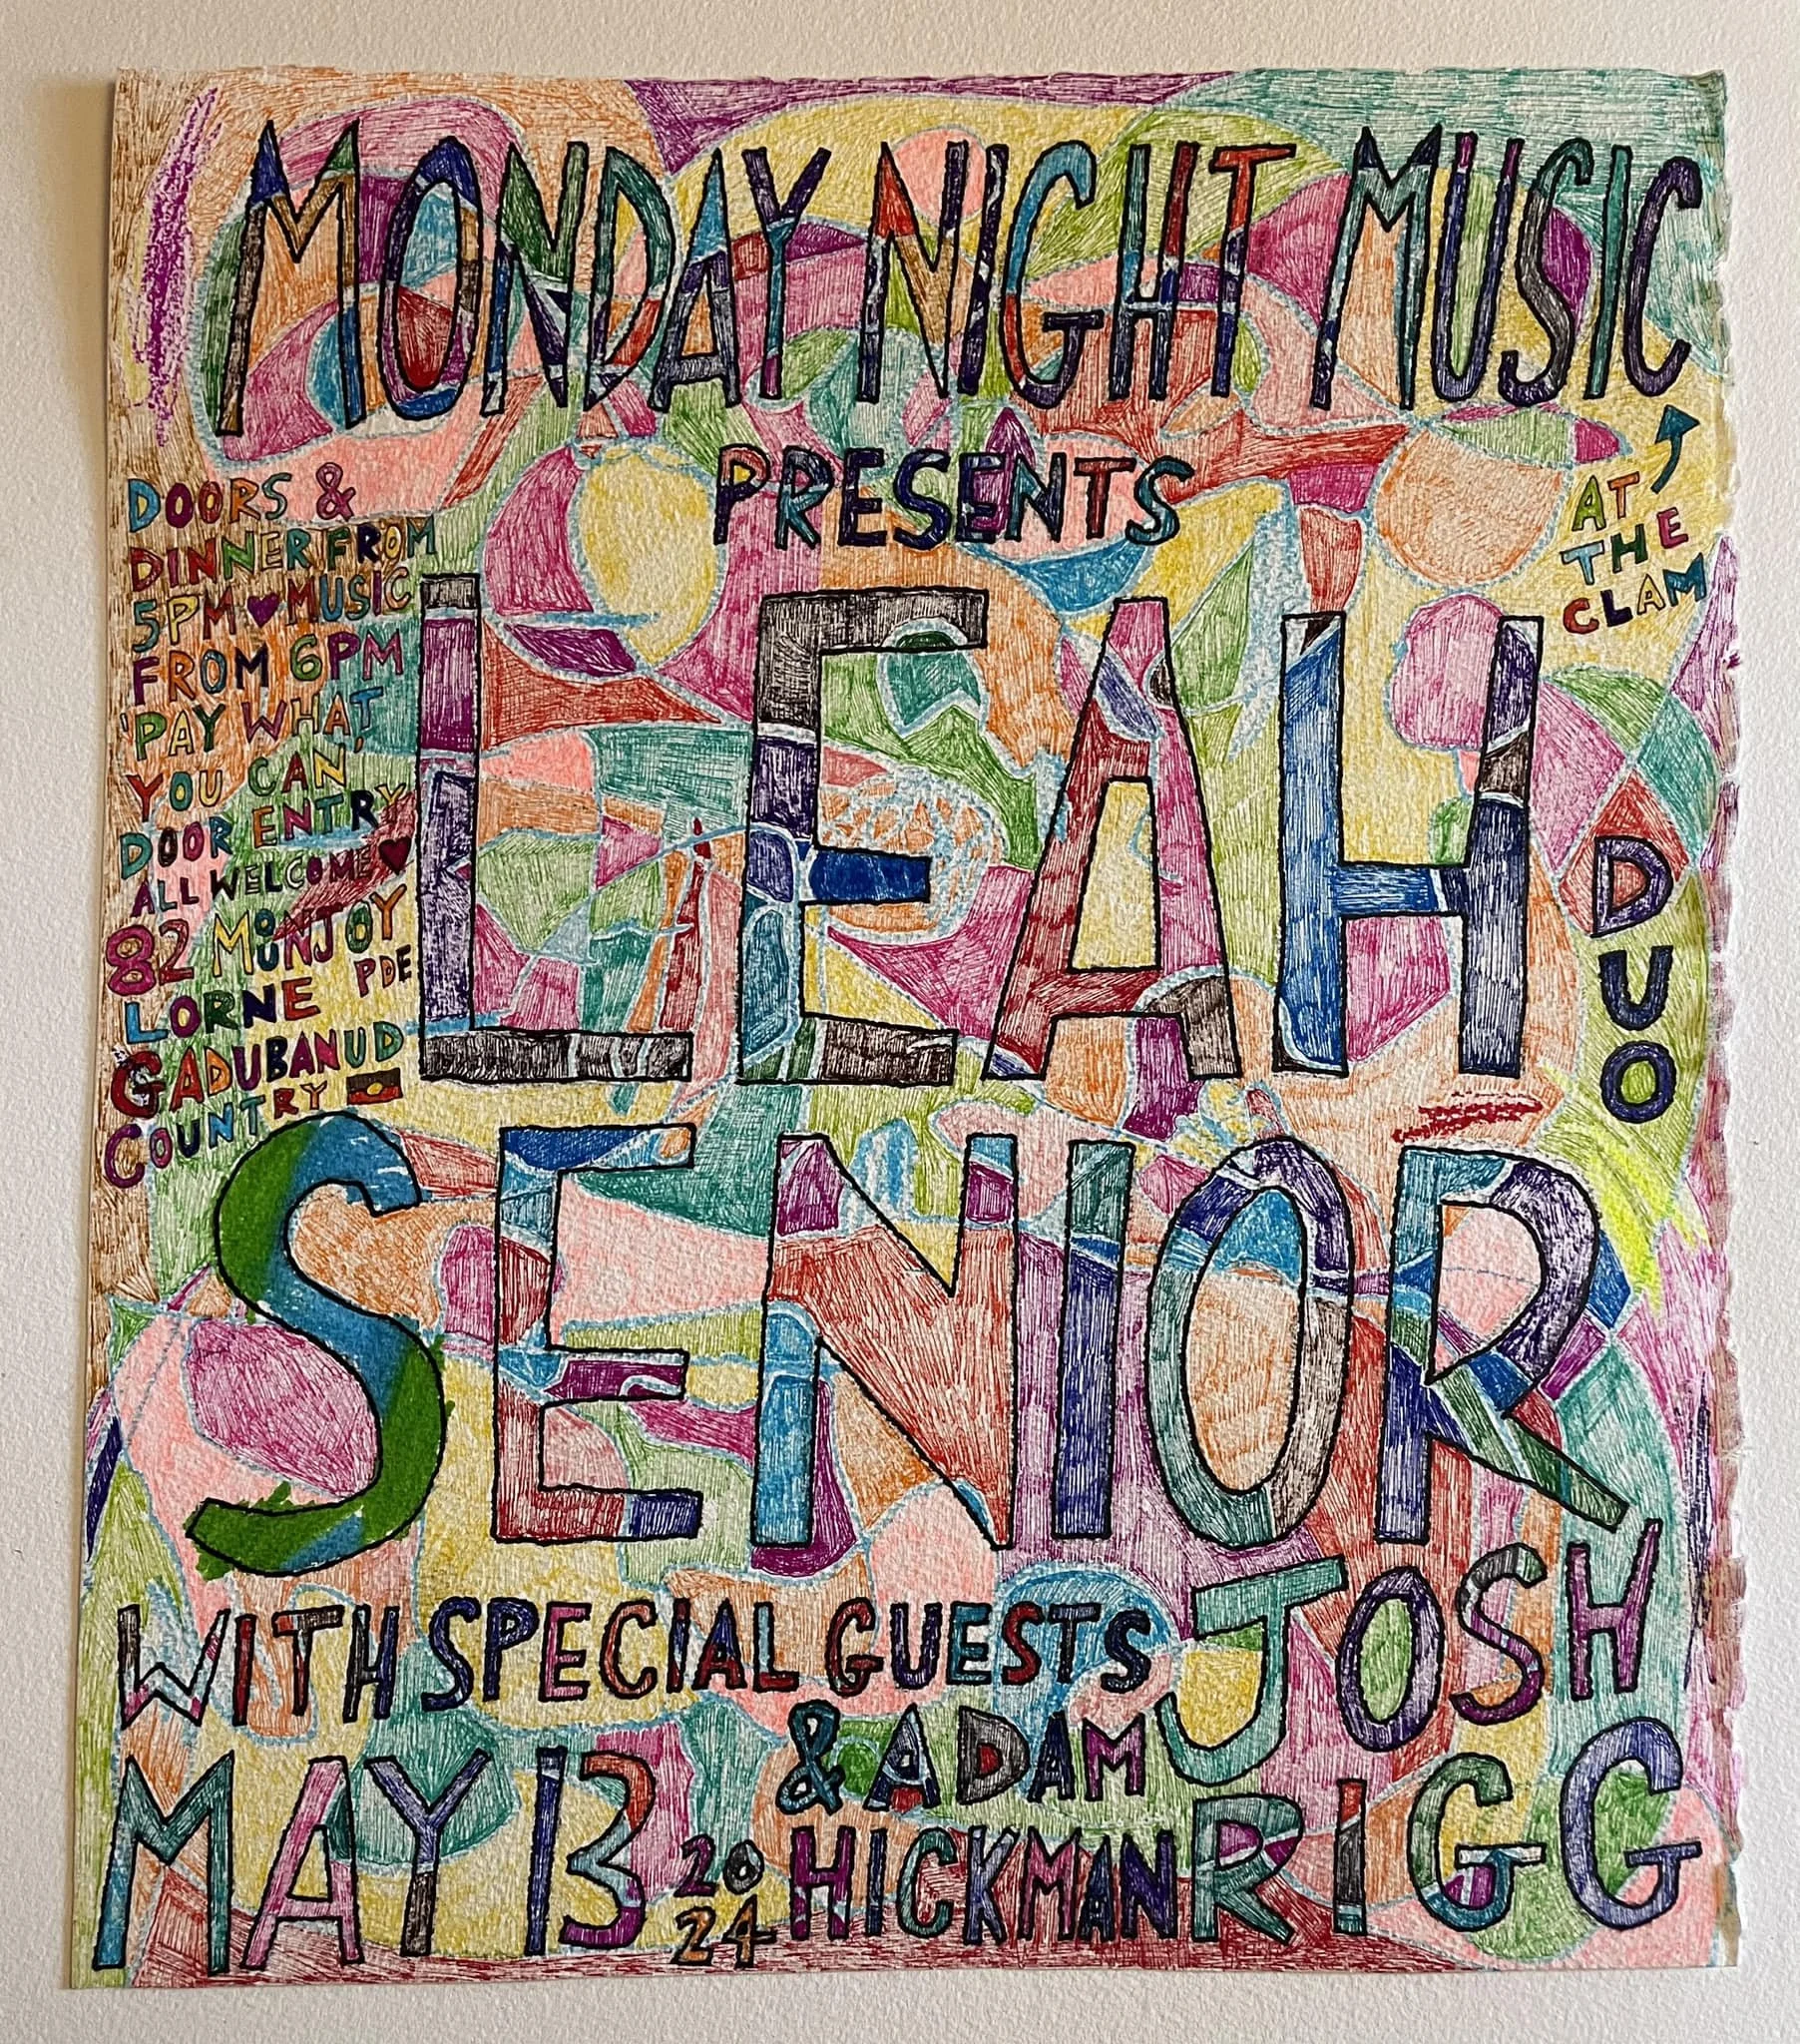 MONDAY NIGHT MUSIC
PRESENTS
AT
THE
CLAM
DOORS &
DINNER FROM
5PM ♥ MUSIC
FROM 6PM
'PAY WHAT
YOU CAN'
DOOR ENTRY
ALL WELCOME ♥
82 MOUNJOY
PDE
LORNE
GADUBANUD
COUNTRY
LEAH
DUO
SENIOR
WITH SPECIAL GUESTS
JOSH
RIGG
& ADAM
HICKMAN
MAY 13
20
24